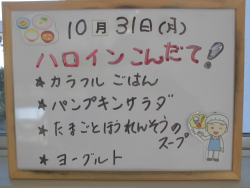 10月31日(月)
ハロインこんだて!
★ カラフルごはん
★ パンプキンサラダ
★ たまごとほうれんそうの
スープ
★ ヨーグルト